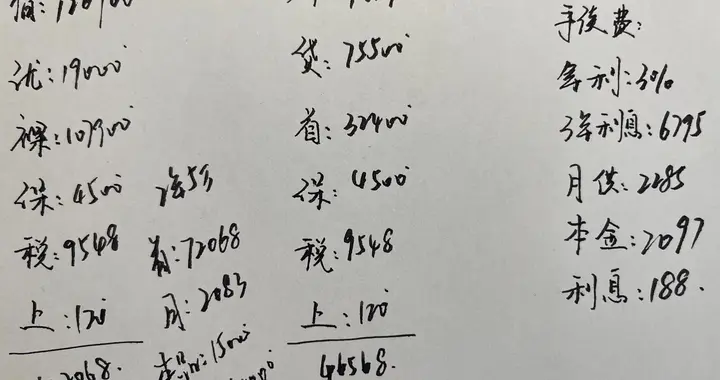 指: 126900
优: 19000
裸: 107900
保: 4500
税: 9548
上: 120
首: 72068
月: 2083
贷: 75500
首: 32400
保: 4500
税: 9548
上: 120
46568.
手续费:
年利: 3%
3年利息: 6795
月供: 2285
本金: 2097
利息: 188.